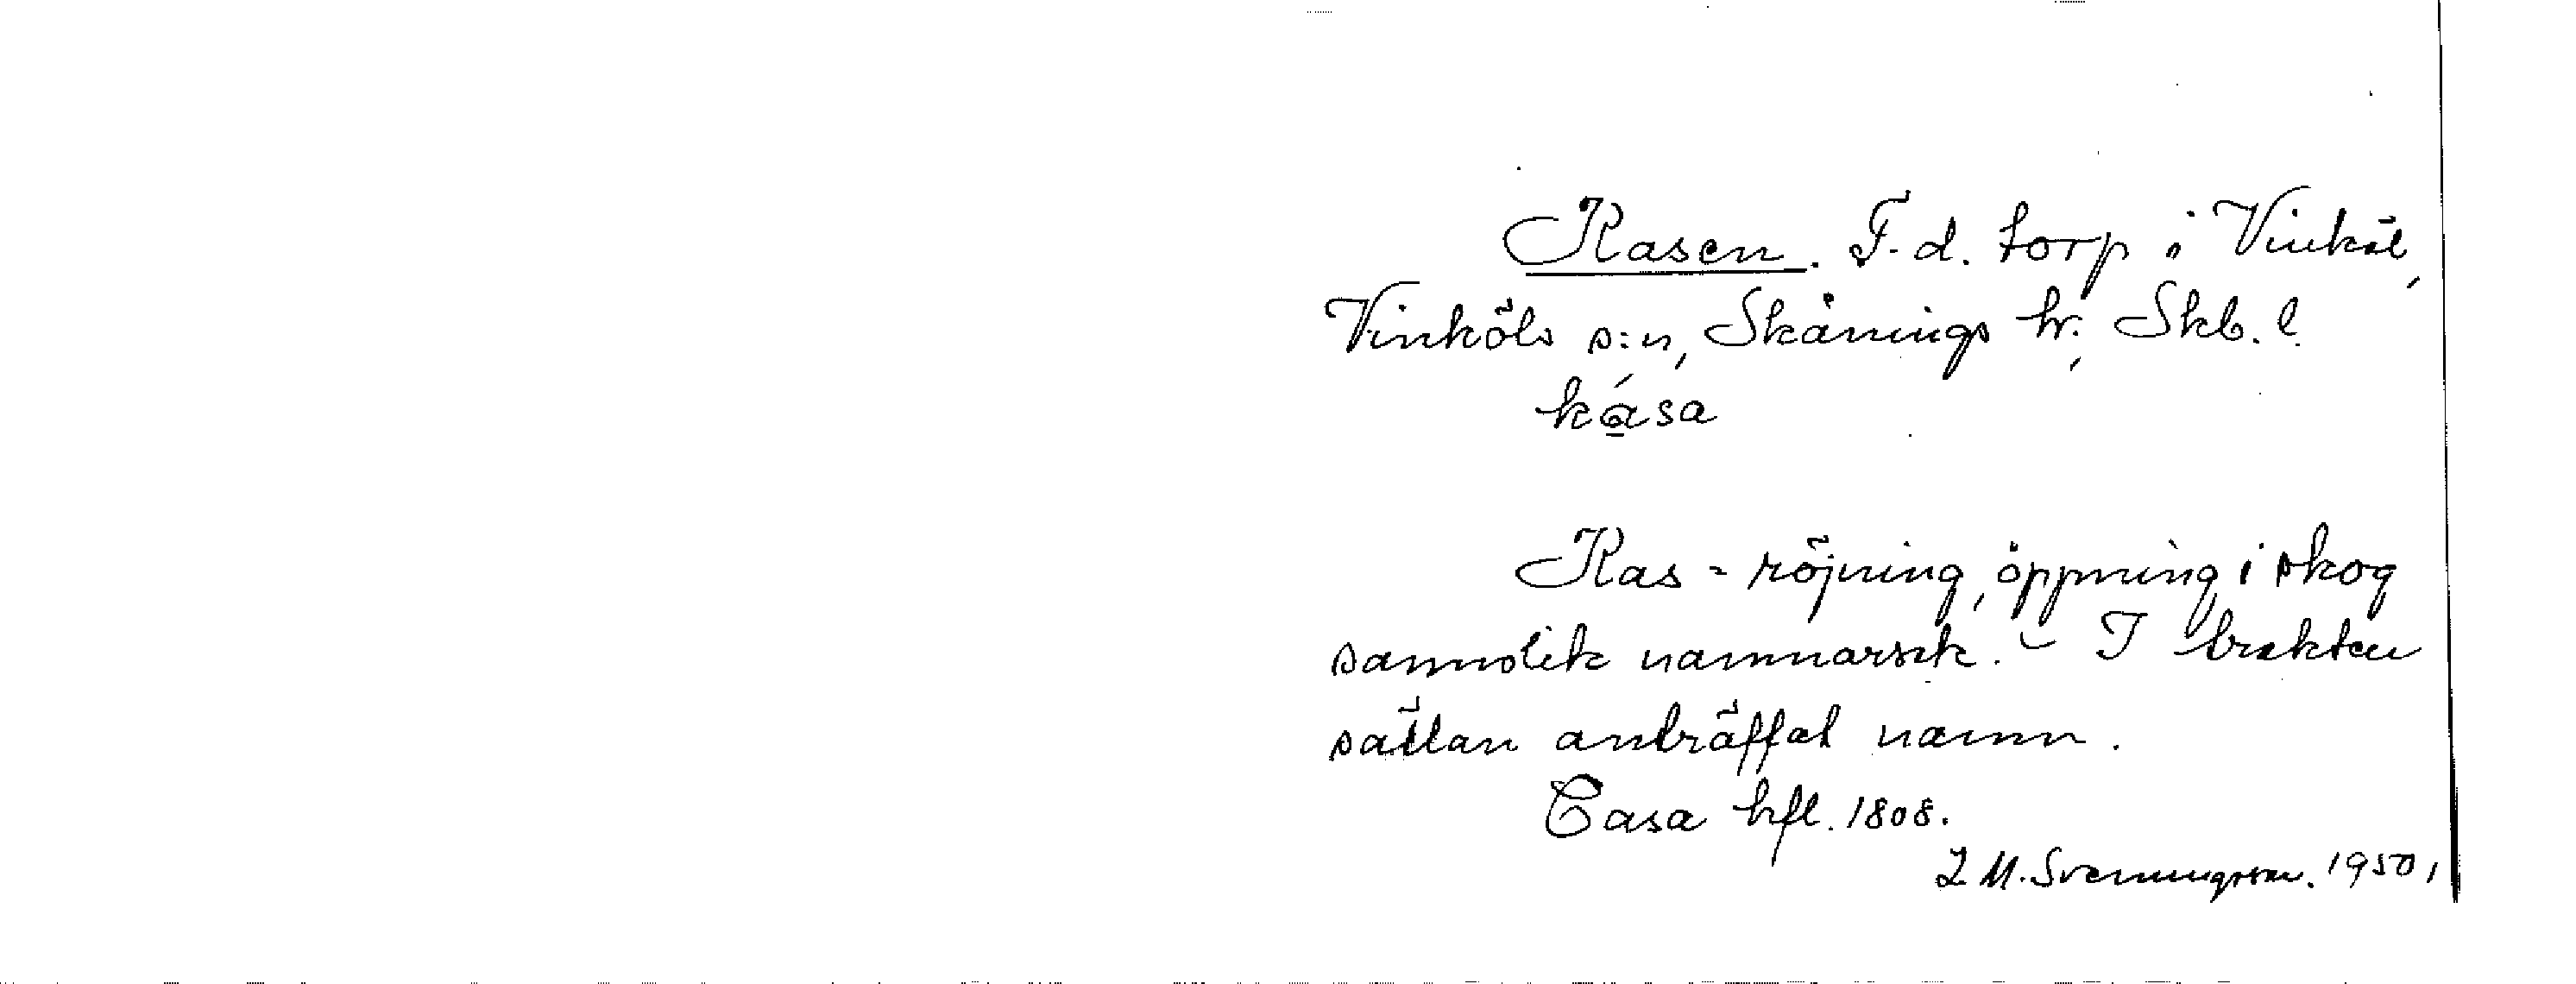 Kasen. F.d. torp i Vinköl,
Vinköls s:n, Skånings hr, Skb. l.
kása
Kas - röjning, öppning i skog
sannolik namnorsak. - I trakten
sällan anträffat namn.
Casa hfl. 1808.
Z M. Svenningsson. 1950,